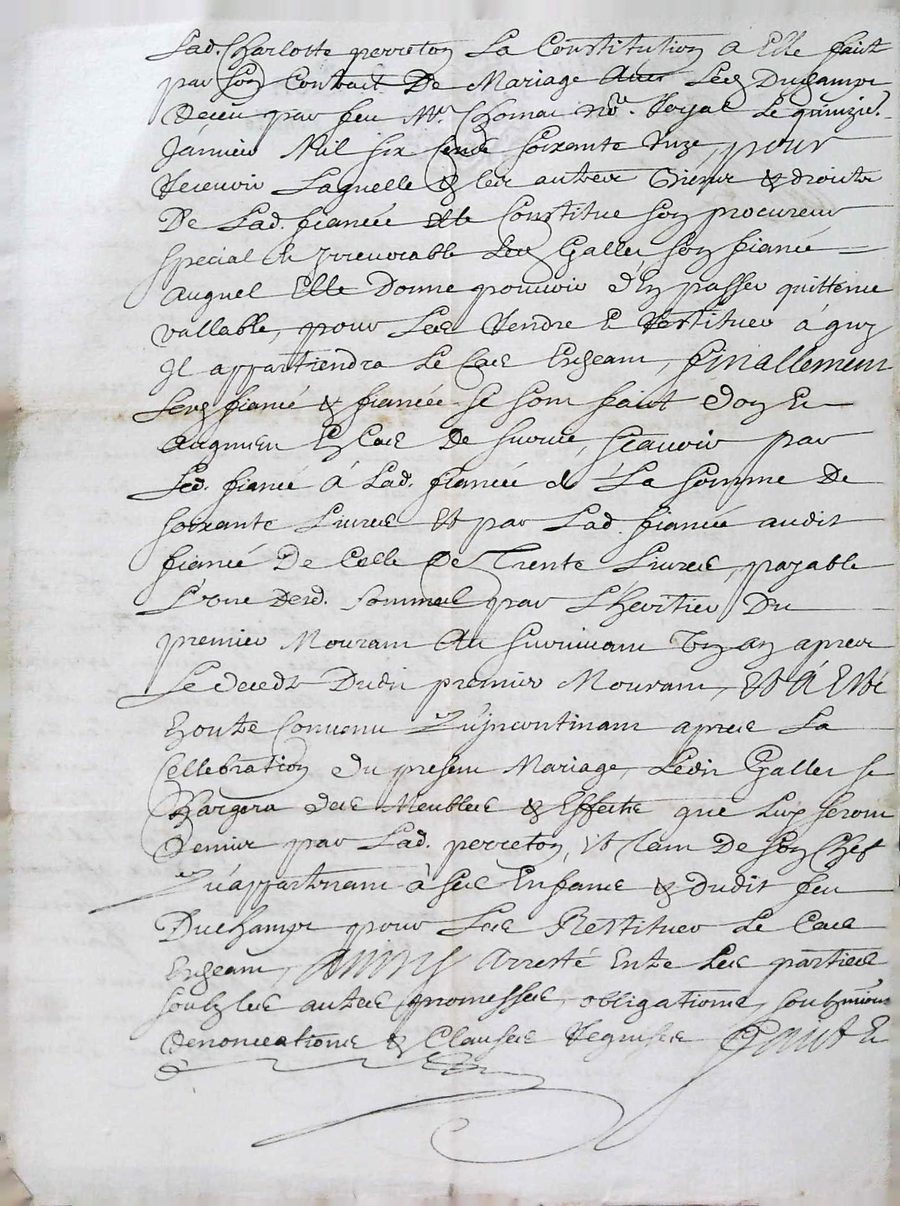 Lad. Charlotte perreton La Constitution a Elle faitt
par son Contract De Mariage Avec Led Duchampt
Receu par feu Me. Thomas no.re Royal Le quinzie.
Janvier Mil six Cens soixante unze, pour
Recevoir Laquelle & les autres biens & droits
De Lad. fiancée Elle Constitue son procureur
special & Irrevocable Led Galler son fiancé
Auquel Elle Donne pouvoir d'En passer quittence
vallable, pour Les Rendre & Restituer a quy
Il appartiendra Le Cas Escheant, finallement
Lesd fiancé & fiancée se sont faict don Et
Augment En Cas De survie, scavoir par
Led. fiancé à Lad. fiancée de La somme De
soixante Livres Et par Lad. fiancée audit
fiancé De Celle De Trente Livres, payable
L'une Desd. sommes par L'heritier Du
premier Mourant Au survivant Un an apres
Le deceds Dudit premier Mourant, Et A Esté
En outre Convenu qu'incontinant apres La
Cellebration du present Mariage, Ledit Galler se
Chargera des Meubles & Effects que Luy seront
Remis par Lad. perreton, Et tant De son Chef
qu'appartenant à ses Enfans & dudit feu
Duchampt pour Les Restituer Le Cas
Escheant, Ainsy Arresté Entre Les parties
soubz les autres promesses, obligations, soubzmissions
Renonciations & Clauses Requises Faict Et